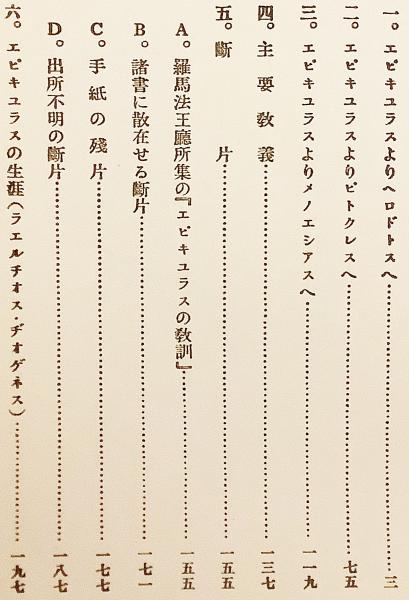 一。エピキュラスよりヘロドトスへ…………三
二。エピキュラスよりピトクレスへ…………七五
三。エピキュラスよりメノエシアスへ…………一一九
四。主要教義…………一三七
五。斷片…………一五五
A。羅馬法王廳所集の『エピキュラスの教訓』…………一五五
B。諸書に散在せる斷片…………一七一
C。手紙の殘片…………一七七
D。出所不明の斷片…………一八七
六。エピキュラスの生涯(ラエルチオス・ヂオゲネス)…………一九七